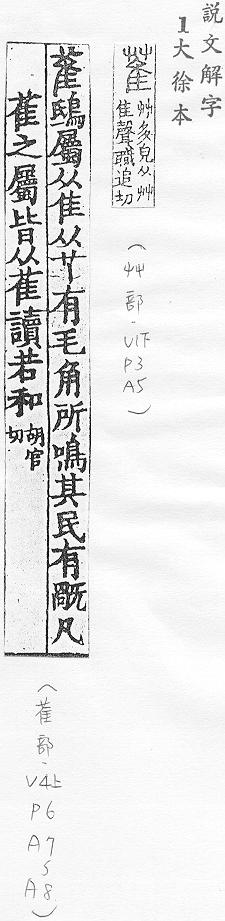 説文解字
1大徐本
萑 艸多皃从艸
隹聲職追切
(艸部.V1下P3A5)
萑鴟屬从隹从𦫳有毛角所鳴其民有旤凡
萑之屬皆从萑讀若和 胡官
切
(萑部.V4上P6A7~A8)